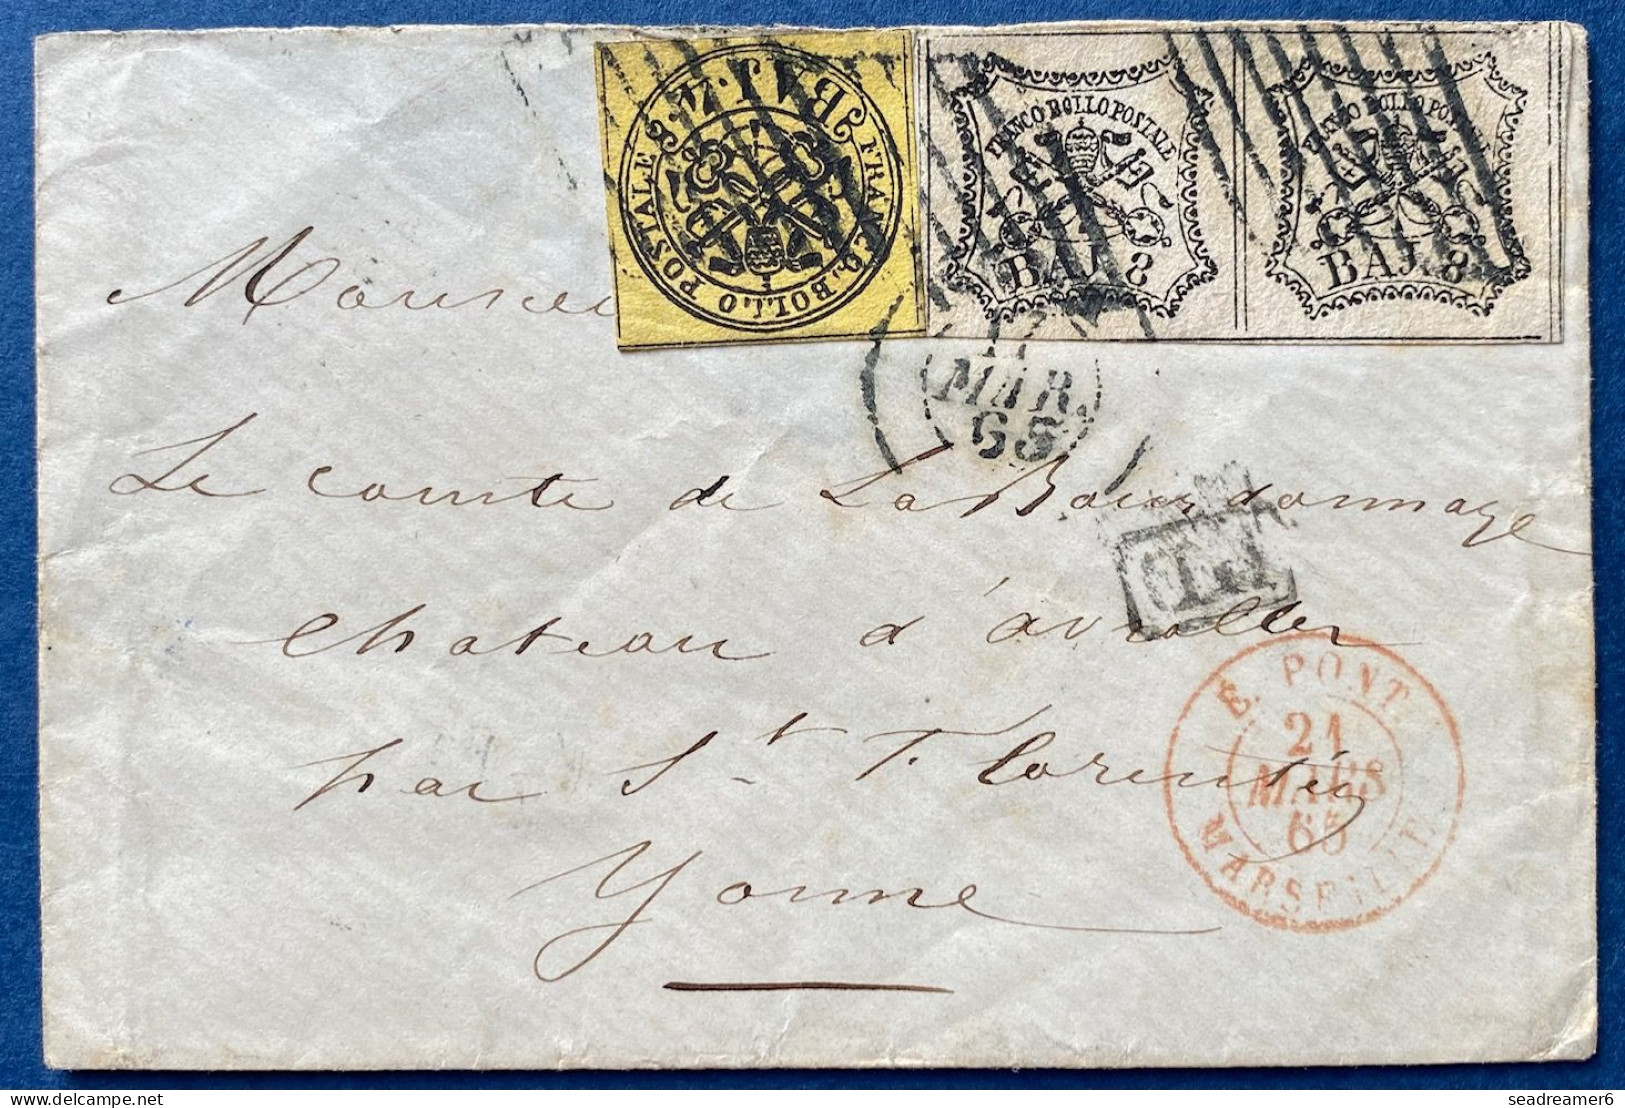 FRANCO BOLLO POSTALE
BAJ. 4
FRANCO BOLLO POSTALE
BAJ. 8
FRANCO BOLLO POSTALE
BAJ. 8
17
MAR.
65
Monsieu
Le comte de La Bourdonnaye
P.D.
chateau d'avroller
par St Florentin
Yonne
E. PONT.
21
MARS
65
MARSEILLE
www.delcampe.net
seadreamer6